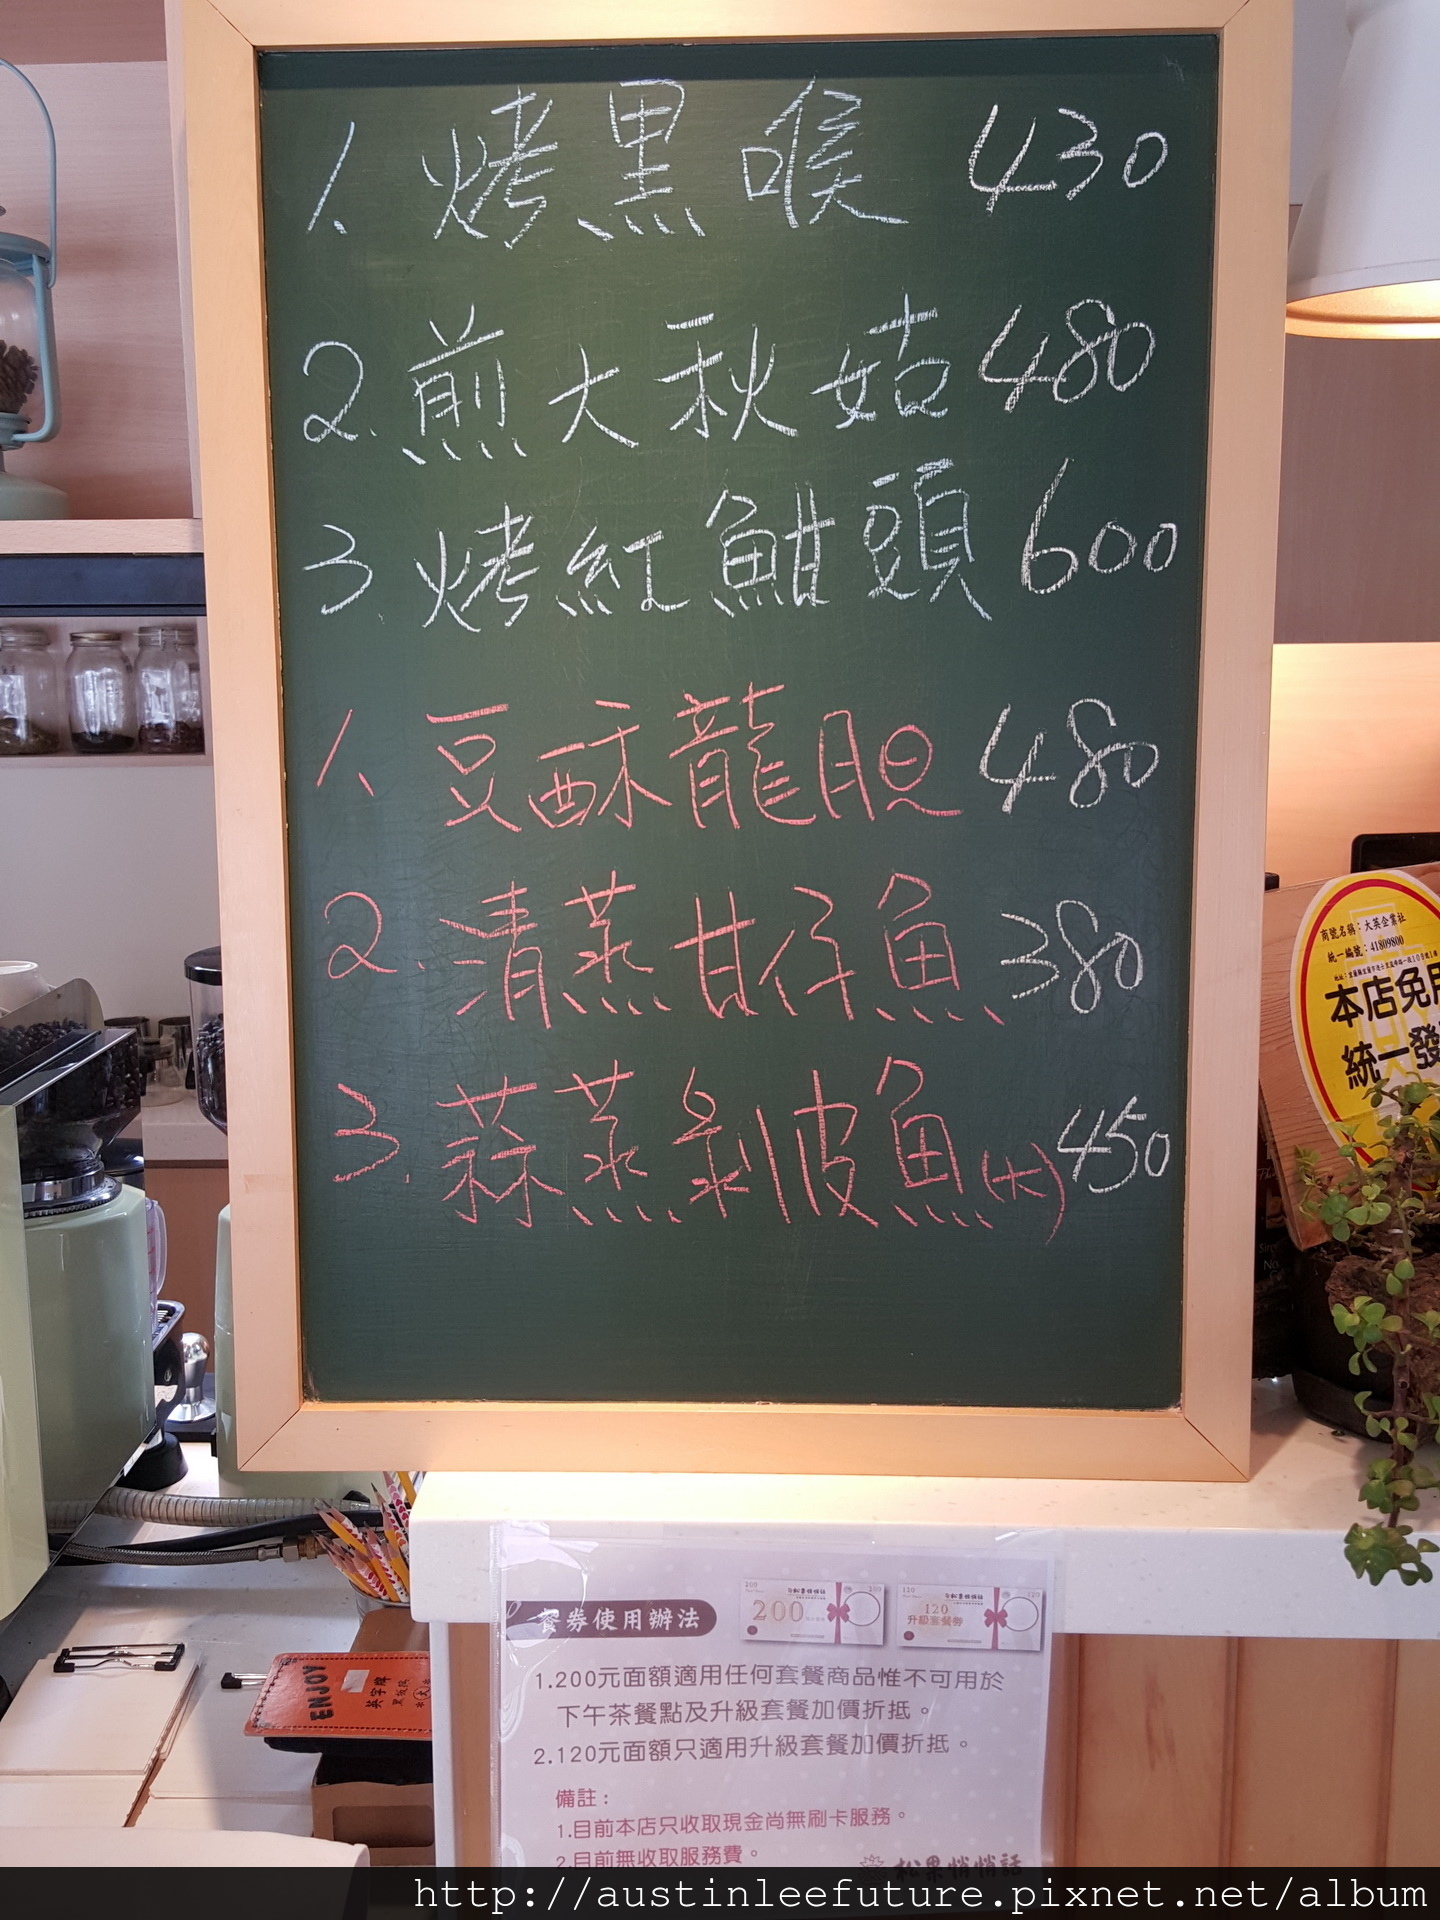 1. 烤黑喉 430
2. 煎大秋姑 480
3. 烤紅魽頭 600
1. 豆酥龍胆 480
2. 清蒸甘仔魚 380
3. 蒜蒸剝皮魚(大) 450
商號名稱:大英企業社
統一編號:41809800
本店免用
統一發
ENJOY
英字牌
餐券使用辦法
200
120
升級套餐券
1.200元面額適用任何套餐商品惟不可用於
下午茶餐點及升級套餐加價折抵。
2.120元面額只適用升級套餐加價折抵。
備註:
1.目前本店只收取現金尚無刷卡服務。
2.目前無收取服務費。
松果悄悄話
http://austinleefuture.pixnet.net/album